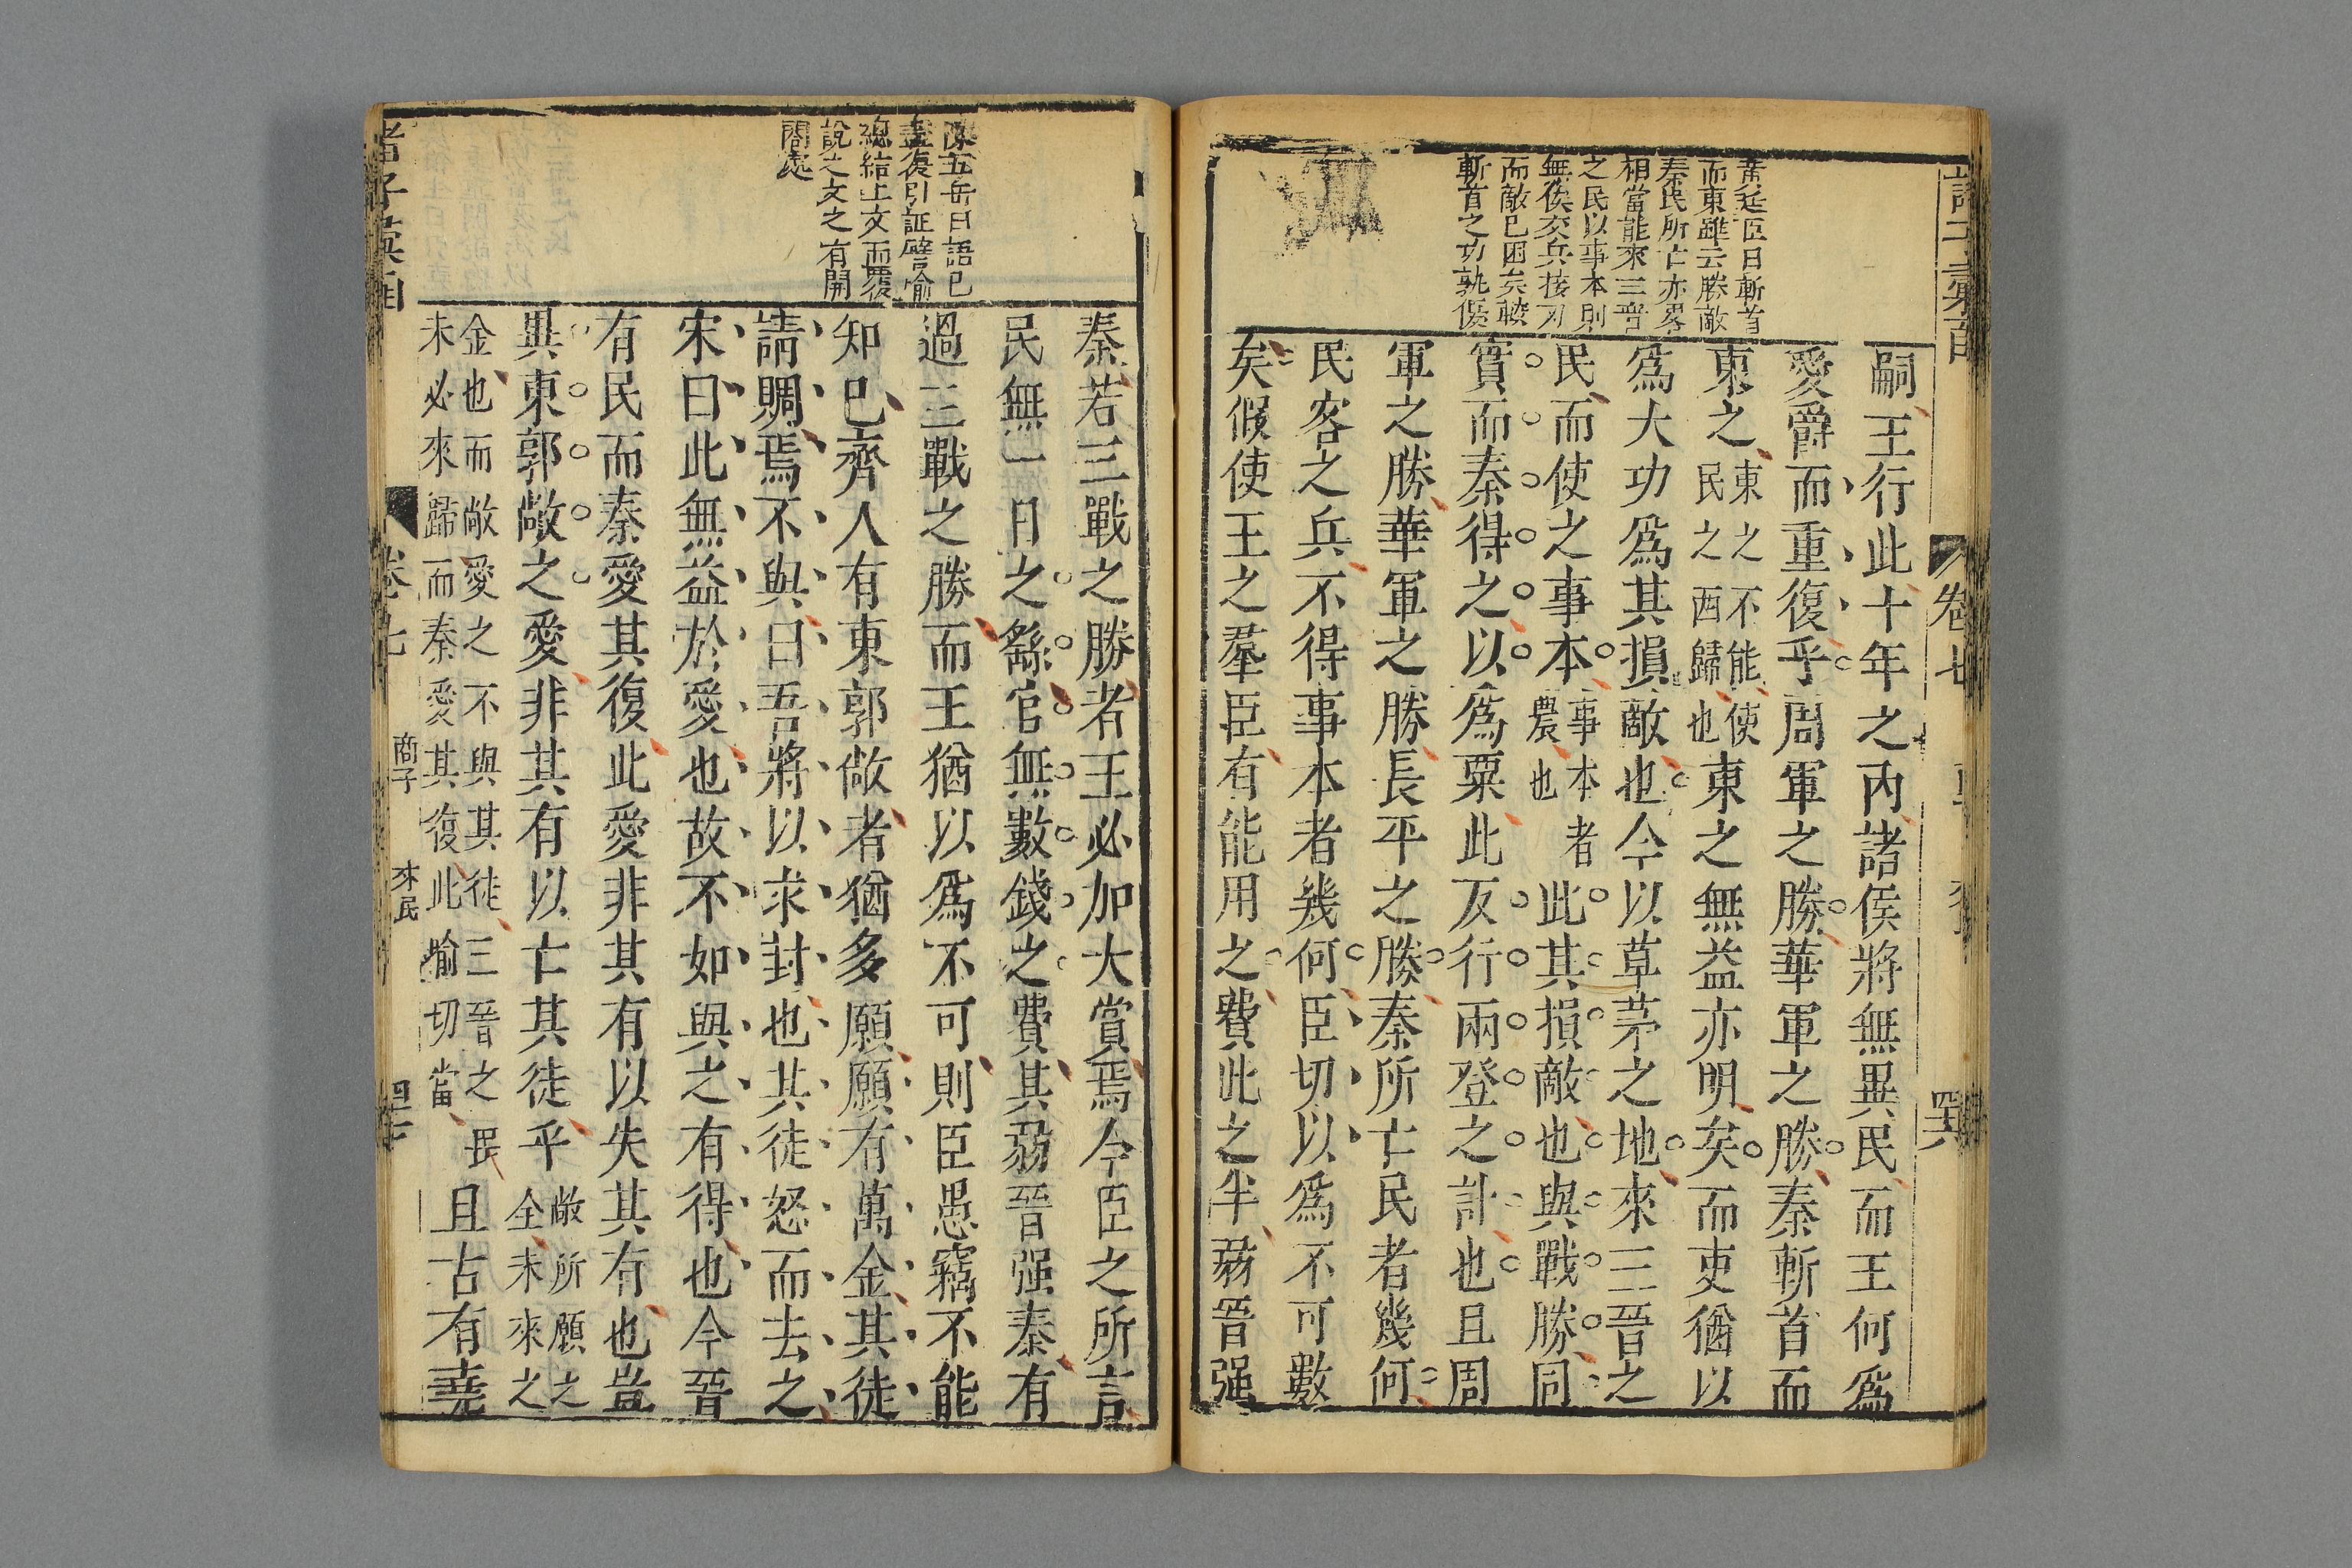 黃廷臣曰斬首
而東雖云勝敵
秦民所亡亦畧
相當能來三晉
之民以事本則
無俟交兵接刃
而敵已困矣較
斬首之功孰優
嗣王行此十年之內諸侯將無異民而王何爲
愛爵而重復乎周軍之勝華軍之勝秦斬首而
東之東之不能使民之西歸也東之無益亦明矣而吏猶以
爲大功爲其損敵也今以草茅之地來三晉之
民而使之事本事本者農也此其損敵也與戰勝同
實而秦得之以爲粟此反行兩登之計也且周
軍之勝華軍之勝長平之勝秦所亡民者幾何
民客之兵不得事本者幾何臣切以爲不可數
矣假使王之羣臣有能用之費此之半弱晉强
卷七
陳五岳曰語已
盡復引証譬喻
總結上文而覆
說之文之有開
闔處
秦若三戰之勝者王必加大賞焉今臣之所言
民無一日之繇官無數錢之費其弱晉强秦有
過三戰之勝而王猶以爲不可則臣愚竊不能
知已齊人有東郭敞者猶多願願有萬金其徒
請賙焉不與曰吾將以求封也其徒怒而去之
宋曰此無益於愛也故不如與之有得也今晉
有民而秦愛其復此愛非其有以失其有也豈
異東郭敞之愛非其有以亡其徒乎敞所願之全未來之
金也而敞愛之不與其徒三晉之民未必來歸而秦愛其復此喻切當且古有堯
卷七
商子
來民